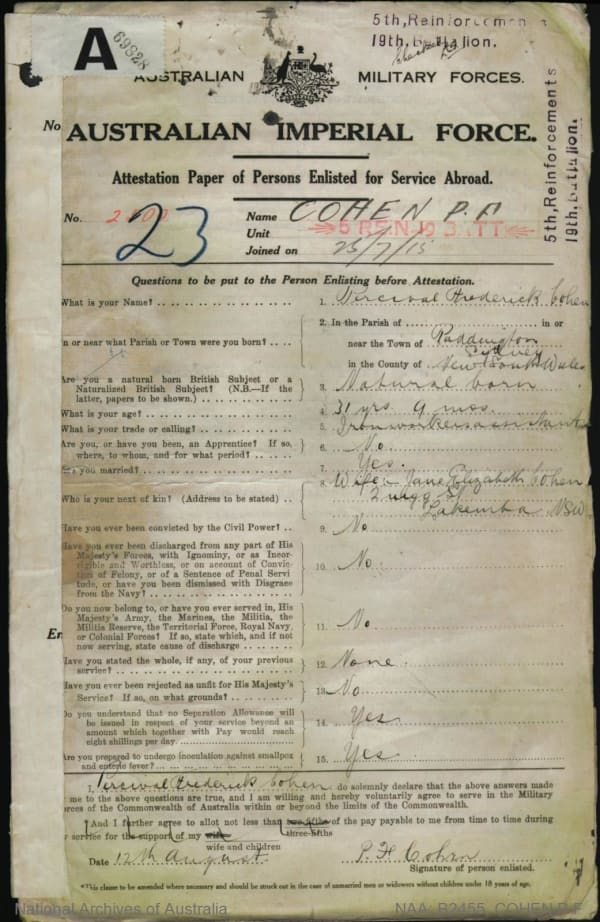 A
69828
5th, Reinforcemen s
19th, Battalion.
AUSTRALIAN MILITARY FORCES.
5th, Reinforcements
19th, Battalion.
No
AUSTRALIAN IMPERIAL FORCE.
Attestation Paper of Persons Enlisted for Service Abroad.
No. 23 Name COHEN P.F
Unit 5 REN 19 BATT
Joined on 25/7/15
Questions to be put to the Person Enlisting before Attestation.
What is your Name? 1. Percival Frederick Cohen
2. In the Parish of in or
n or near what Parish or Town were you born? near the Town of Paddington
Sydney
in the County of New South Wales
Are you a natural born British Subject or a
Naturalized British Subject? (N.B.—If the
latter, papers to be shown.) 3. Natural born
What is your age? 4. 31 yrs 9 mos.
What is your trade or calling? 5. Ironworkers assistant
Are you, or have you been, an Apprentice? If so,
where, to whom, and for what period? 6. No.
Are you married? 7. Yes.
Who is your next of kin? (Address to be stated) 8. Wife Jane Elizabeth Cohen
St
Lakemba NSW
Have you ever been convicted by the Civil Power? 9. No
Have you ever been discharged from any part of His
Majesty's Forces, with Ignominy, or as Incor-
rigible and Worthless, or on account of Convic-
tion of Felony, or of a Sentence of Penal Servi
tude, or have you been dismissed with Disgrace
from the Navy? 10. No.
Do you now belong to, or have you ever served in, His
Majesty's Army, the Marines, the Militia, the
Militia Reserve, the Territorial Force, Royal Navy,
or Colonial Forces? If so, state which, and if not
now serving, state cause of discharge 11. No
En
Have you stated the whole, if any, of your previous
service? 12. None.
Have you ever been rejected as unfit for His Majesty's
Service? If so, on what grounds? 13. No
Do you understand that no Separation Allowance will
be issued in respect of your service beyond an
amount which together with Pay would reach
eight shillings per day. 14. Yes
Are you prepared to undergo inoculation against smallpox
and enteric fever? 15. Yes
I, Percival Frederick Cohen do solemnly declare that the above answers made
me to the above questions are true, and I am willing and hereby voluntarily agree to serve in the Military
orces of the Commonwealth of Australia within or beyond the limits of the Commonwealth.
*And I further agree to allot not less than two-fifths of the pay payable to me from time to time during
three-fifths
service for the support of my wife
wife and children
Date 12th August P. F. Cohen
Signature of person enlisted.
*This clause to be amended where necessary and should be struck out in the case of unmarried men or widowers without children under 18 years of age.
National Archives of Australia NAA: B2455, COHEN P F